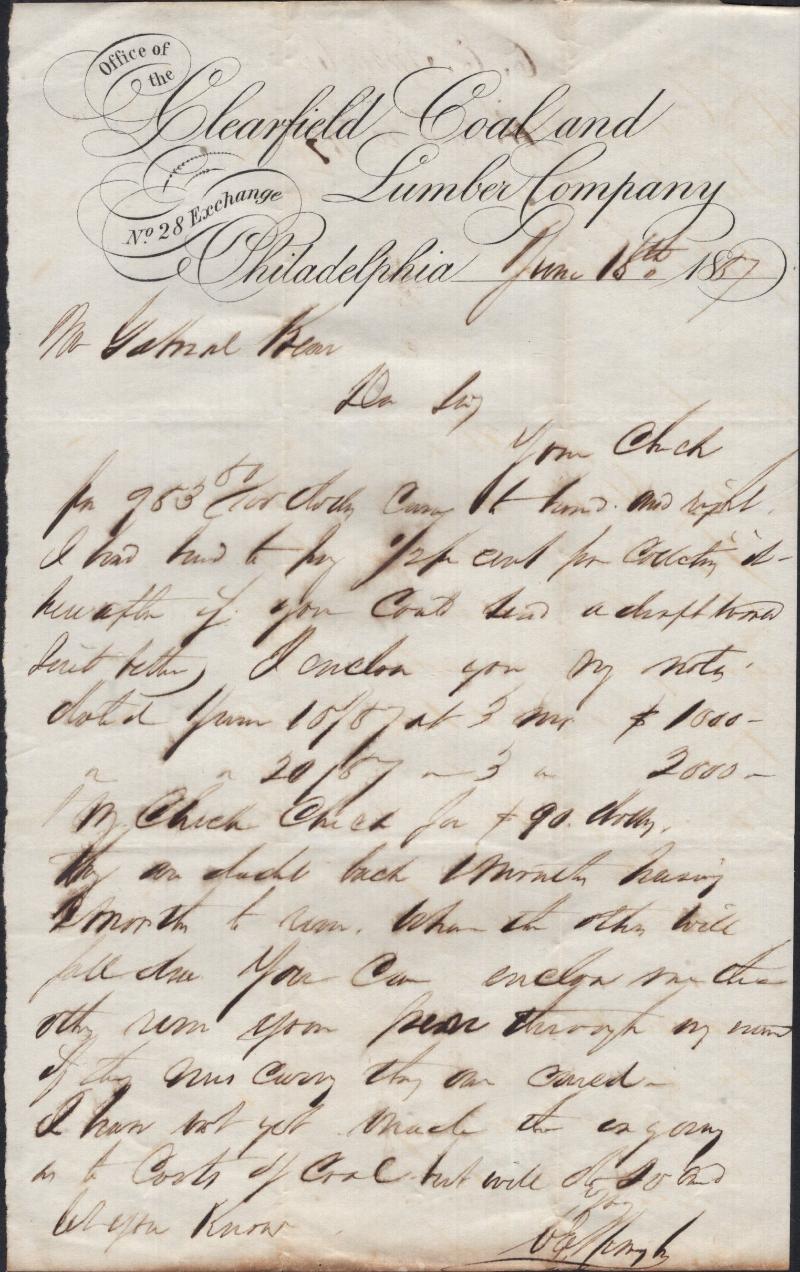 Office of
the
Clearfield Coal and
Lumber Company
No 28 Exchange
Philadelphia June 18th 1857
Mr Gabriel Bear
Dr Sir
Your Check
for 953 50/100 dolls Came to hand and right.
I had to pay 1/2 pr cent for Collecting it
hereafter if you Could send a draft would
suit better, I enclose you my notes
dated June 18/57 at 3 mo $ 1000 -
" " 20/57 " 3 " 2000 -
My Check for $ 90. dolls.
They are dated back 1 Month having
2 months to run. When the other will
fall due You Can enclose me the
other run your pen through my name
if they mis carry they are
I have not yet made the enquiry
as to Costs of Coal but will do so and
let you Know